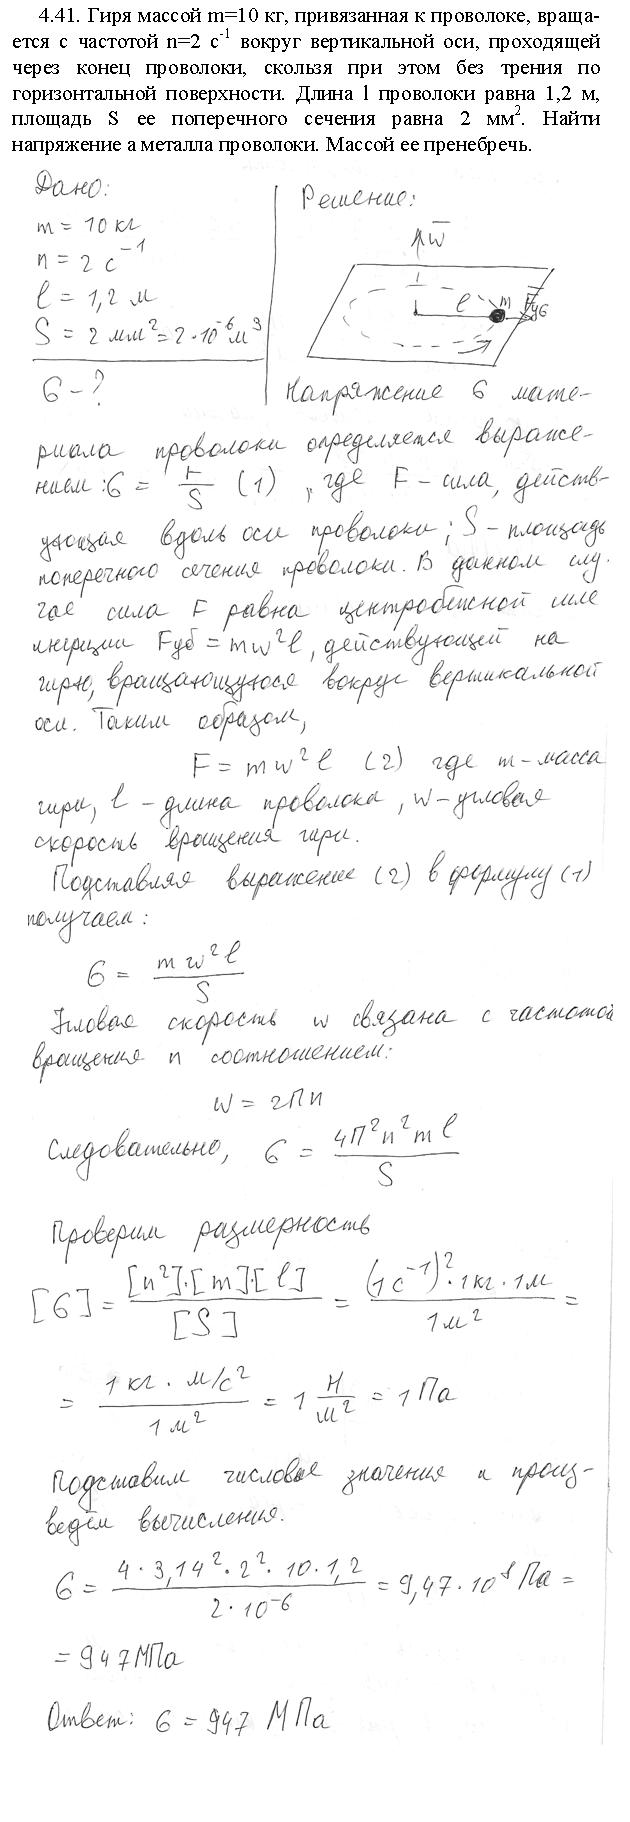 4.41. Гиря массой m=10 кг, привязанная к проволоке, враща-
ется с частотой n=2 с-1 вокруг вертикальной оси, проходящей
через конец проволоки, скользя при этом без трения по
горизонтальной поверхности. Длина l проволоки равна 1,2 м,
площадь S ее поперечного сечения равна 2 мм2. Найти
напряжение a металла проволоки. Массой ее пренебречь.
Дано:
m = 10 кг
n = 2 с⁻¹
l = 1,2 м
S = 2 мм² = 2·10⁻⁶ м³
σ - ?
Решение:
w
l m Fцб
Напряжение σ мате-
риала проволоки определяется выраже-
нием: σ = F/S (1), где F - сила, действ-
ующая вдоль оси проволоки; S - площадь
поперечного сечения проволоки. В данном слу-
чае сила F равна центробежной силе
инерции Fцб = mw²l, действующей на
гирю, вращающуюся вокруг вертикальной
оси. Таким образом,
F = mw²l (2) где m - масса
гири, l - длина проволока, w - угловая
скорость вращения гири.
Подставляя выражение (2) в формулу (1)
получаем:
σ = mw²l/S
Угловая скорость w связана с частотой
вращения n соотношением:
w = 2Пn
Следовательно, σ = 4П²n²ml/S
Проверим размерность
[σ] = [n²]·[m]·[l]/[S] = (1с⁻¹)²·1кг·1м/1м² =
= 1 кг·м/с²/1м² = 1 Н/м² = 1 Па
Подставим числовые значения и произ-
ведём вычисления.
σ = 4·3,14²·2²·10·1,2/2·10⁻⁶ = 9,47·10⁸ Па =
= 947 МПа
Ответ: σ = 947 МПа